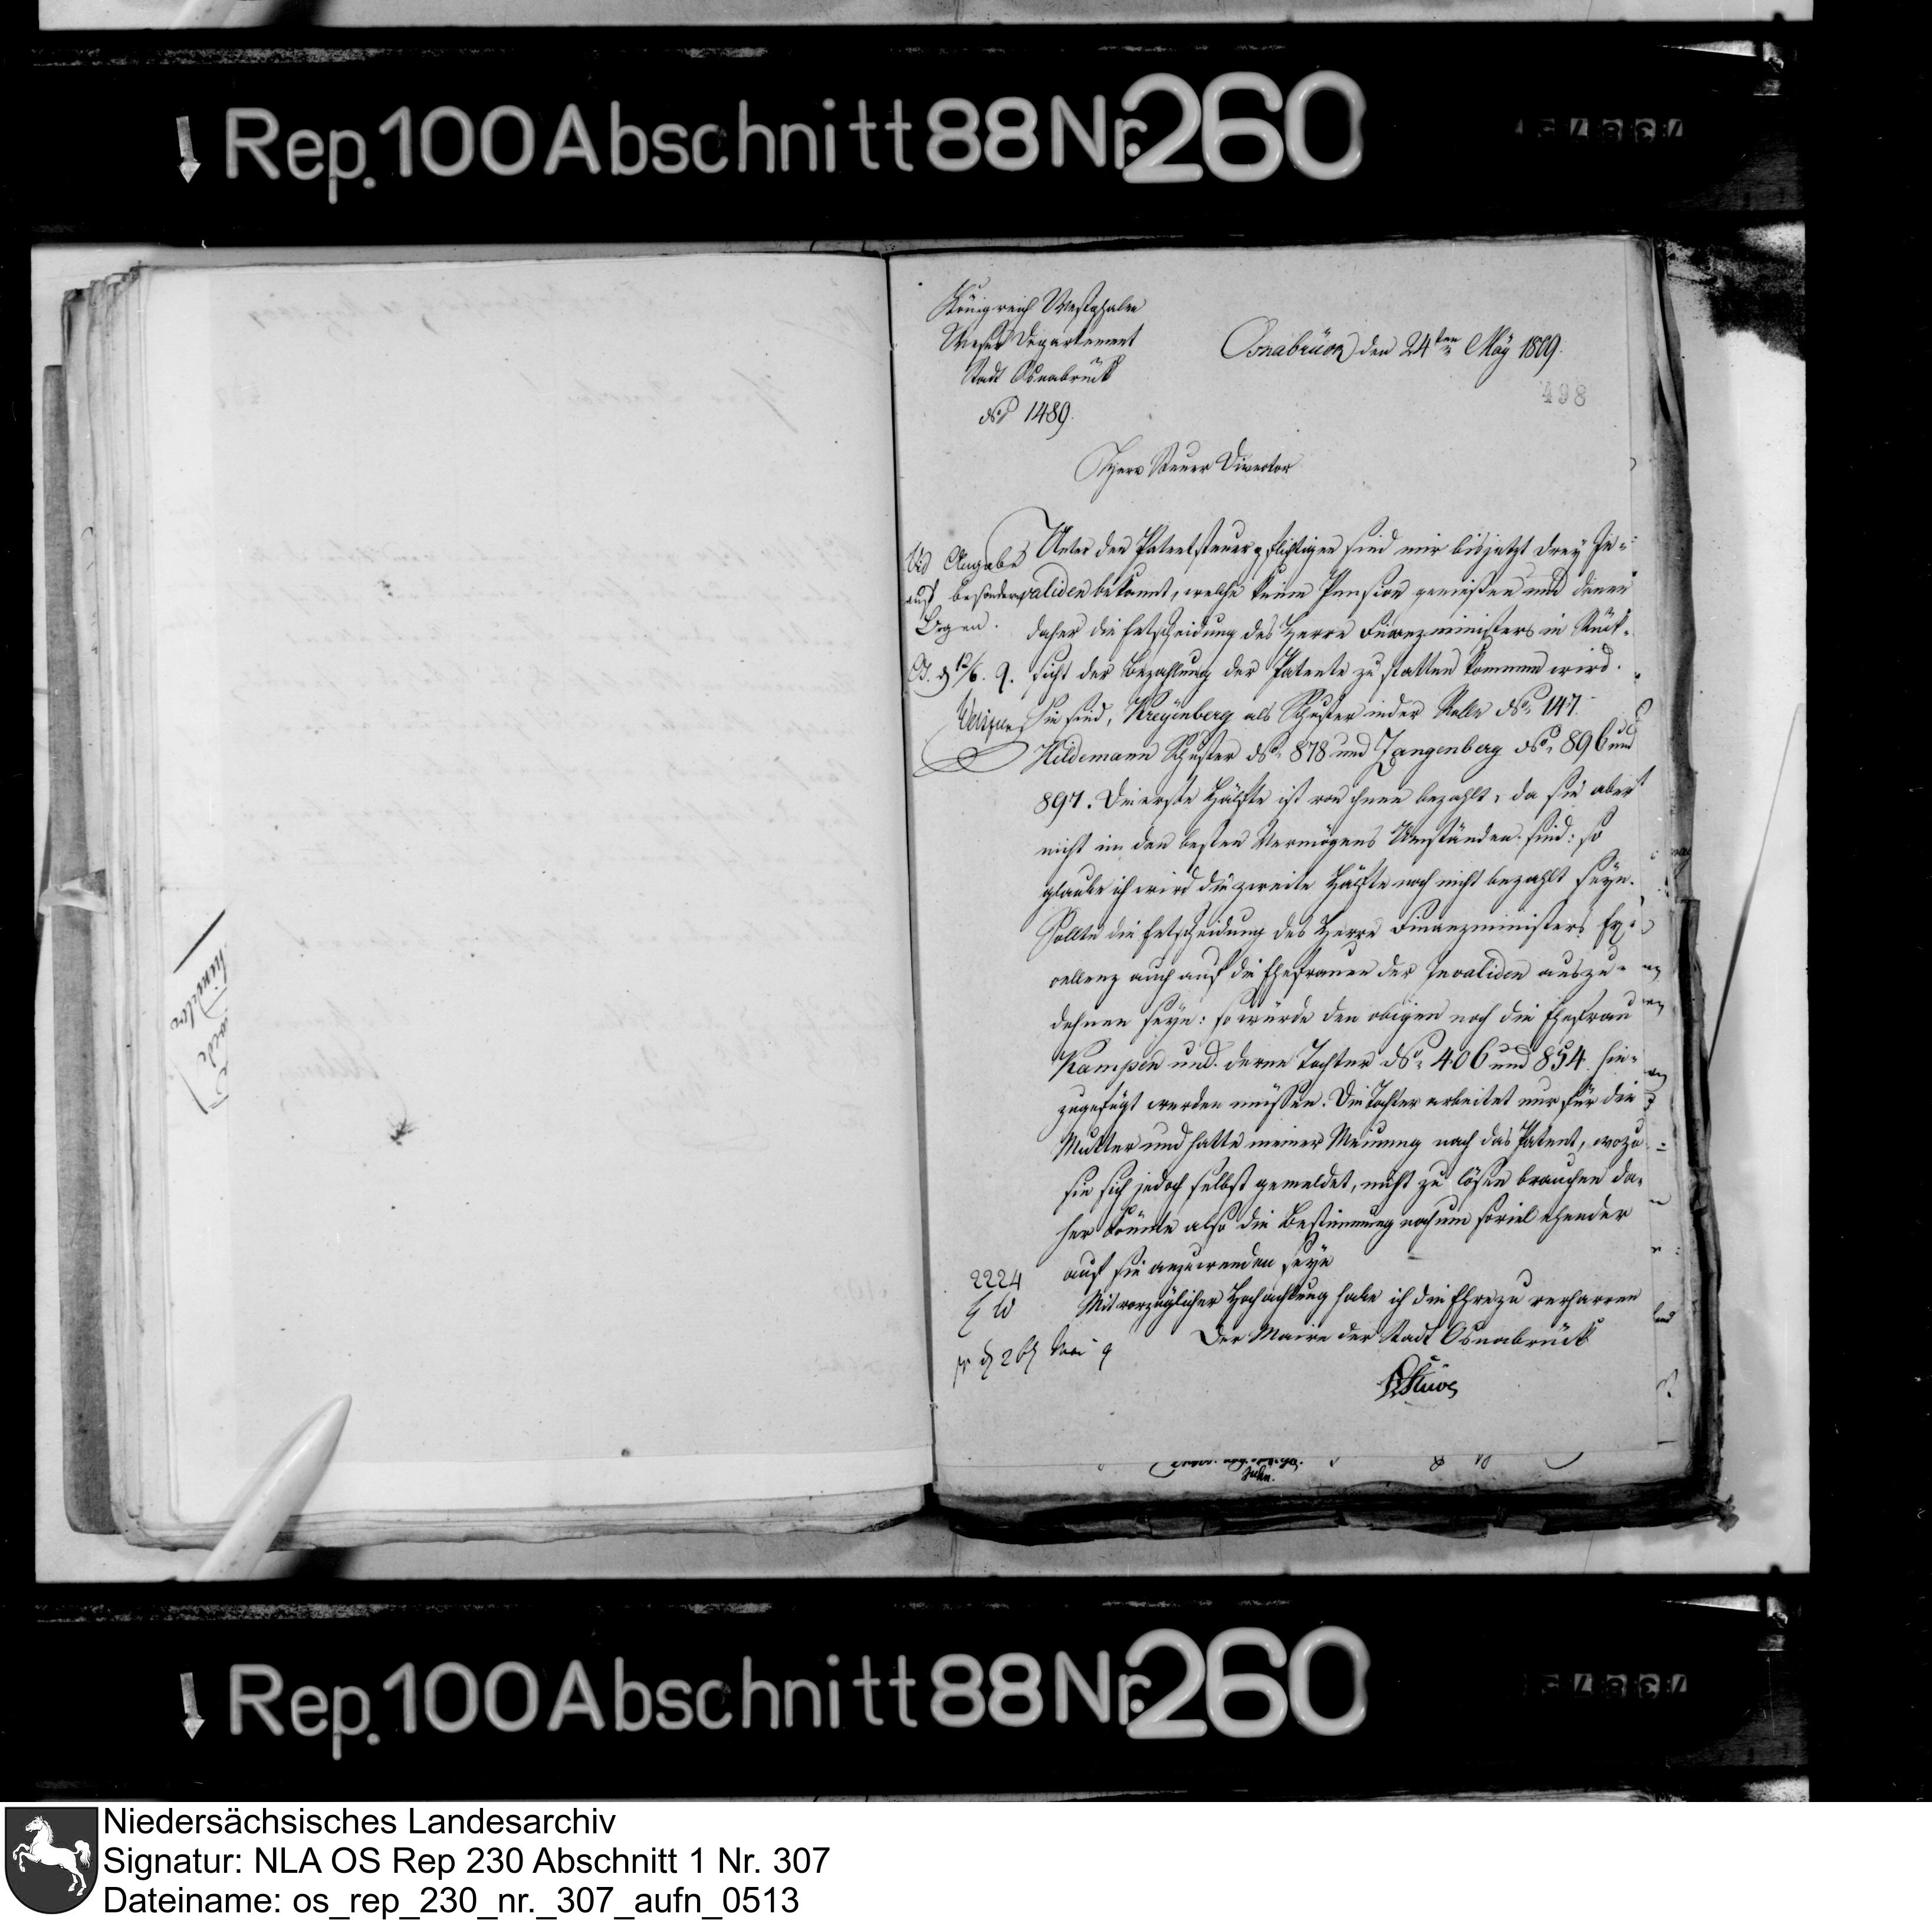 Rep. 100 Abschnitt 88 Nr. 260
Königreich Westphalen
Weser Departement
Stadt Osnabrück
No 1489.
Osnabrück den 24ten May 1809.
498
Herr Steuer Director
Unter den Patentsteuerpflichtigen sind mir bisjetzt drey In-
validen bekannt, welche keine Pension genießen und denen
daher die Entscheidung des Herrn Finanzministers in Rük-
sicht der Bezahlung der Patente zu statten kommen wird.
Sie sind, Kreyenberg als Schuster in der Rolle No 147.
Hildemann Schuster No 878 und Zangenberg No 896 und
897. Die erste Hälfte ist von ihnen bezahlt, da sie aber
nicht in den besten Vermögens Umständen sind: so
glaube ich wird die zweite Hälfte noch nicht bezahlt seyn.
Sollte die Entscheidung des Herrn Finanzministers Ex-
cellenz auch auf die Ehefrauen der Invaliden auszu-
dehnen seyn: so würde den obigen noch die Ehefrau
Kampen und deren Tochter No 406 und 854 hin-
zugefügt werden müssen. Die Tochter arbeitet nur für die
Mutter und hatte meiner Meinung nach das Patent, wozu
sie sich jedoch selbst gemeldet, nicht zu lösen brauchen da-
her könnte also die Bestimmung noch um soviel ehender
auf sie anzuwenden seyn
Mit vorzüglicher Hochachtung habe ich die Ehre zu verharren
Der Maire der Stadt Osnabrück
Stüve
Vid Angabe
auf besondern
Bogen.
2224
Rep. 100 Abschnitt 88 Nr. 260
Niedersächsisches Landesarchiv
Signatur: NLA OS Rep 230 Abschnitt 1 Nr. 307
Dateiname: os_rep_230_nr._307_aufn_0513